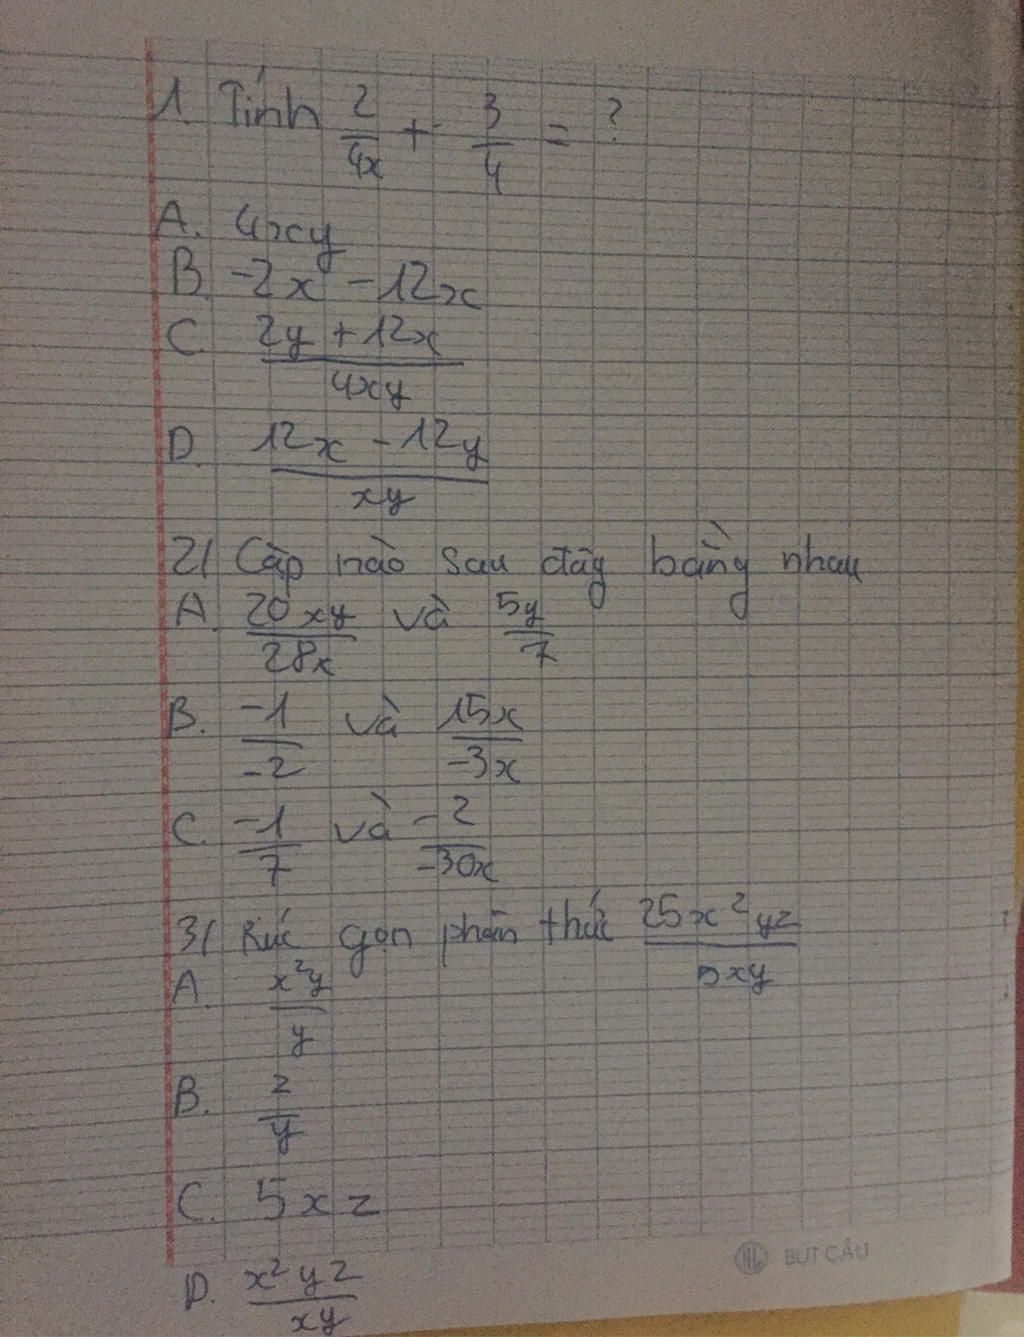 1. Tính 2/4x + 3/y = ?
A. 4xy
B. -2x - 12x
C. 2y + 12x / 4xy
D. 12x - 12y / xy
2/ Cặp nào sau đây bằng nhau
A. 20xy/28x và 5y/7
B. -1/-2 và 15x/-3x
C. -1/7 và -2/-30x
3/ Rút gọn phân thức 25x²yz / 5xy
A. x²y/y
B. z/y
C. 5xz
D. x²yz/xy
BÚT CÂU